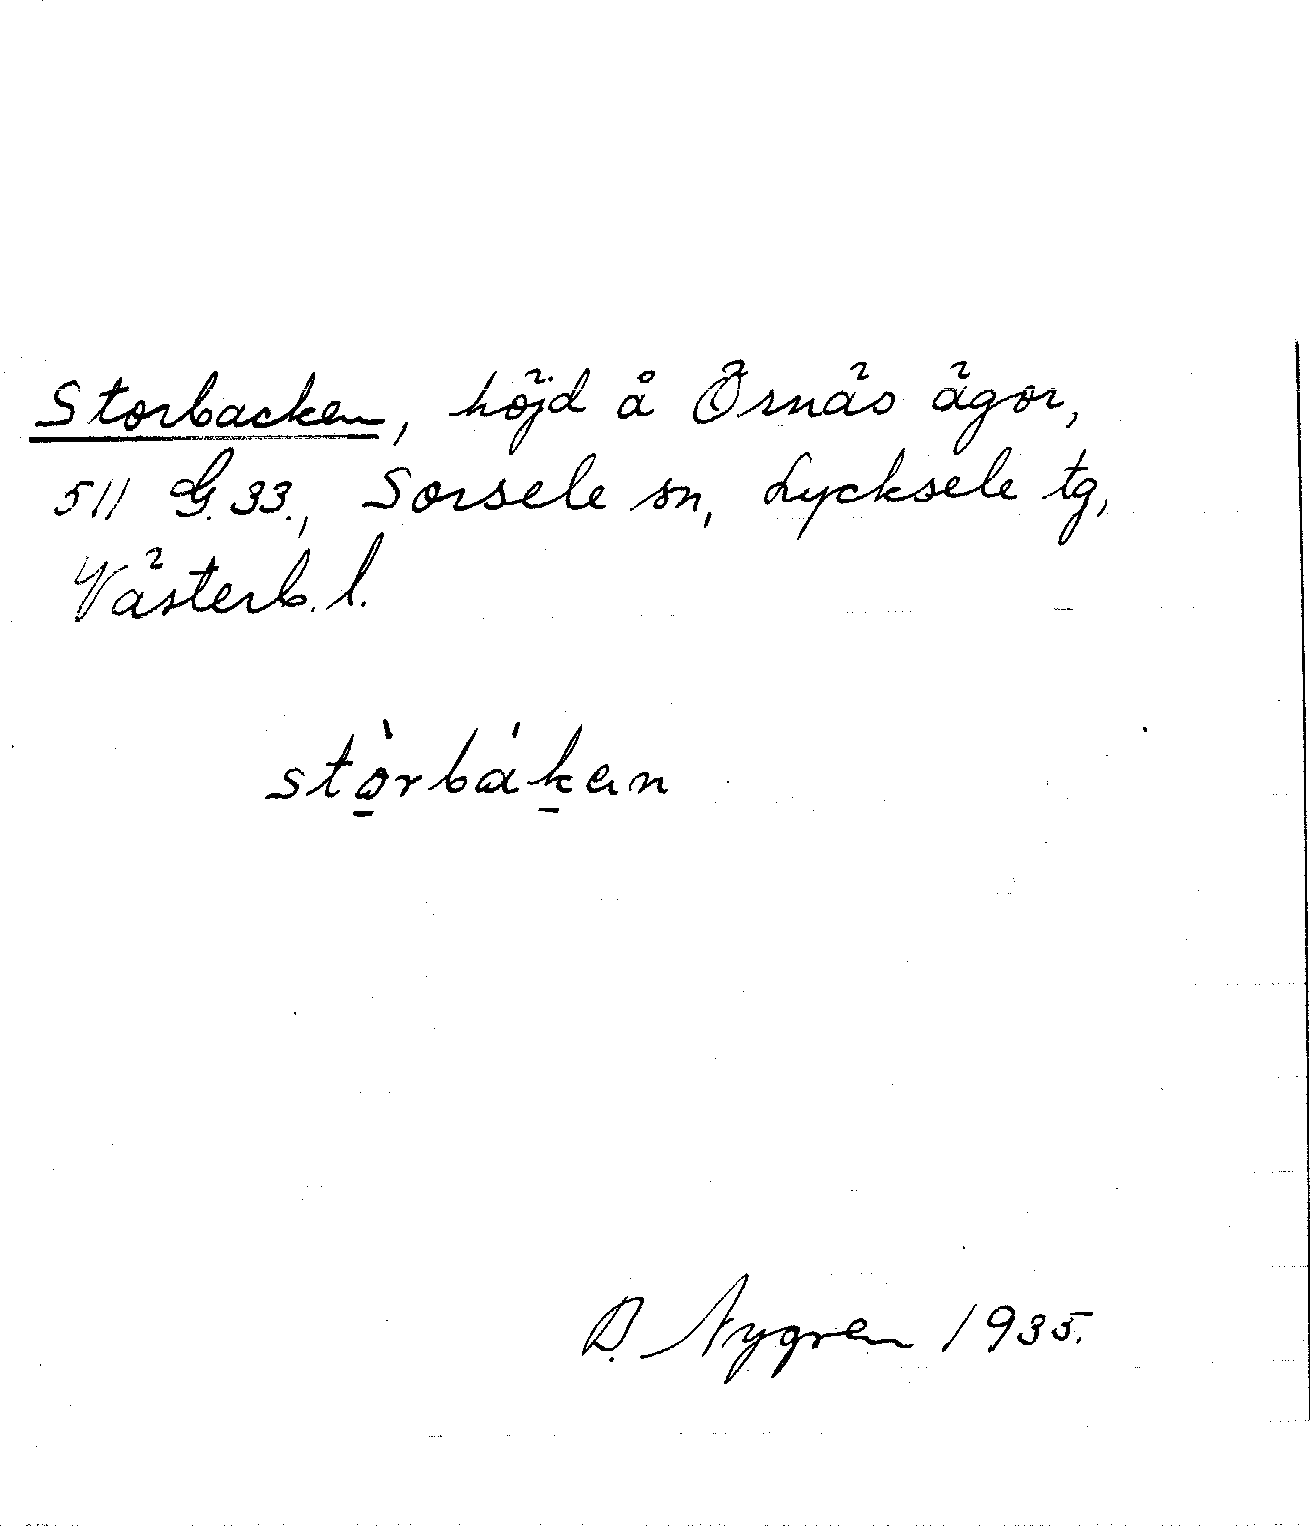 Storbacken, höjd å Örnäs ägor,
511 G.33., Sorsele sn, Lycksele tg,
Västerb. l.
stò̱rbáḵen
D. Nygren 1935.